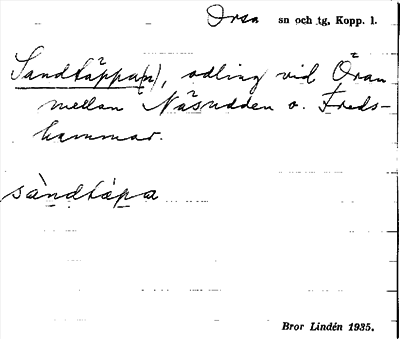 Orsa sn och tg, Kopp. l.
Sandtäppa(n), odling vid Öran
mellan Näsudden o. Freds-
hammar.
sàndtápa
Bror Lindén 1935.